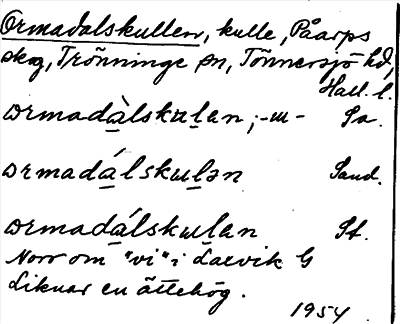 Ormadalskullen, kulle, Påarps
skog, Trönninge sn, Tönnersjö hd,
Hall. l.
ormadàlskulan, -ɯ- Sa.
ormadálskulən Sand.
ormadálskulan St.
Norr om "vi" i Laxvik G
Liknar en ättehög.
1954